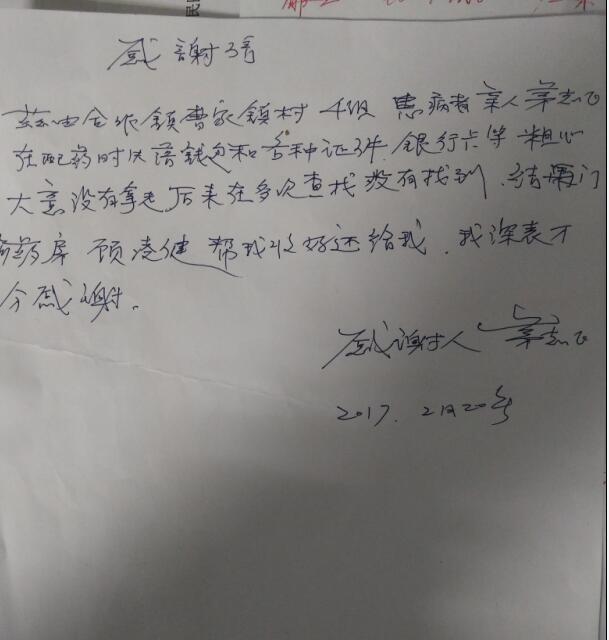 感謝
兹由 镇曹家镇村 4组 患病者亲人
在配药时 钱包和各种证件. 银行卡等 粗心
大意没有拿走后来在多次查找没有找到. 结果门
药房 顾凌健 帮我收好还给我. 我深表
分感谢.
感谢人
2017. 2月20号